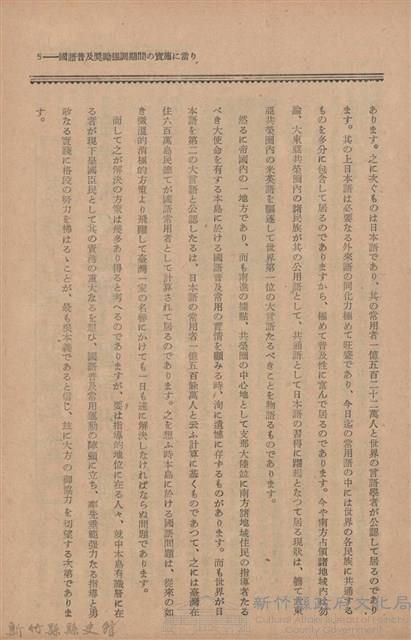 5——國語普及奬勵强調期間の實施に當り
あります。之に次ぐものは日本語であり、其の常用者一億五百二十二萬人と世界の言語學者が公認して居るのであり
ます。其の上日本語は必要なる外來語の同化力極めて旺盛であり、今日迄の常用語の中には世界の各民族に共通する
ものを多分に包含して居るのでありますから、極めて普及性に富んで居るのであります。今や南方占領諸地域内は勿
論、大東亞共榮圈内の諸民族が其の公用語として、共通語として日本語の習得に躍起となつて居る現狀は、軈て東
亞共榮圈内の米英語を驅逐して世界第一位の大言語たるべきことを物語るものであります。
然るに帝國内の一地方であり、而も南進の據點、共榮圈の中心地として支那大陸並に南方諸地域住民の指導者たる
べき大使命を有する本島に於ける國語普及常用の實情を顧みる時、洵に遺憾に存ずるものがあります。而も世界が日
本語を第二の大言語と公認したるは、日本語の常用者一億五百餘萬人と云ふ計算に基くものであつて、之には臺灣在
住六百萬島民總てが國語常用者として計算されて居るのであります。之を想ふ時本島に於ける國語問題は、從來の如
き微溫的消極的方策より飛躍して臺灣一家の名譽にかけても一日も速に解決しなければならぬ問題であります。
而して之が解決の方策は幾多あり得ると考へるのでありますが、要は指導的地位に在る人々、就中本島有識層に在
る者が現下皇國臣民として其の責務の重大なるを想ひ、國語普及常用運動の陣頭に立ち、率先垂範强力なる指導と勇
敢なる實踐に格段の努力を拂はるゝことが、最も喫本義であると信じ、玆に大方の御協力を切望する次第でありま
す。
新竹縣政府文化局
Cultural Affairs Bureau of Hsinchu County
新竹縣縣史館